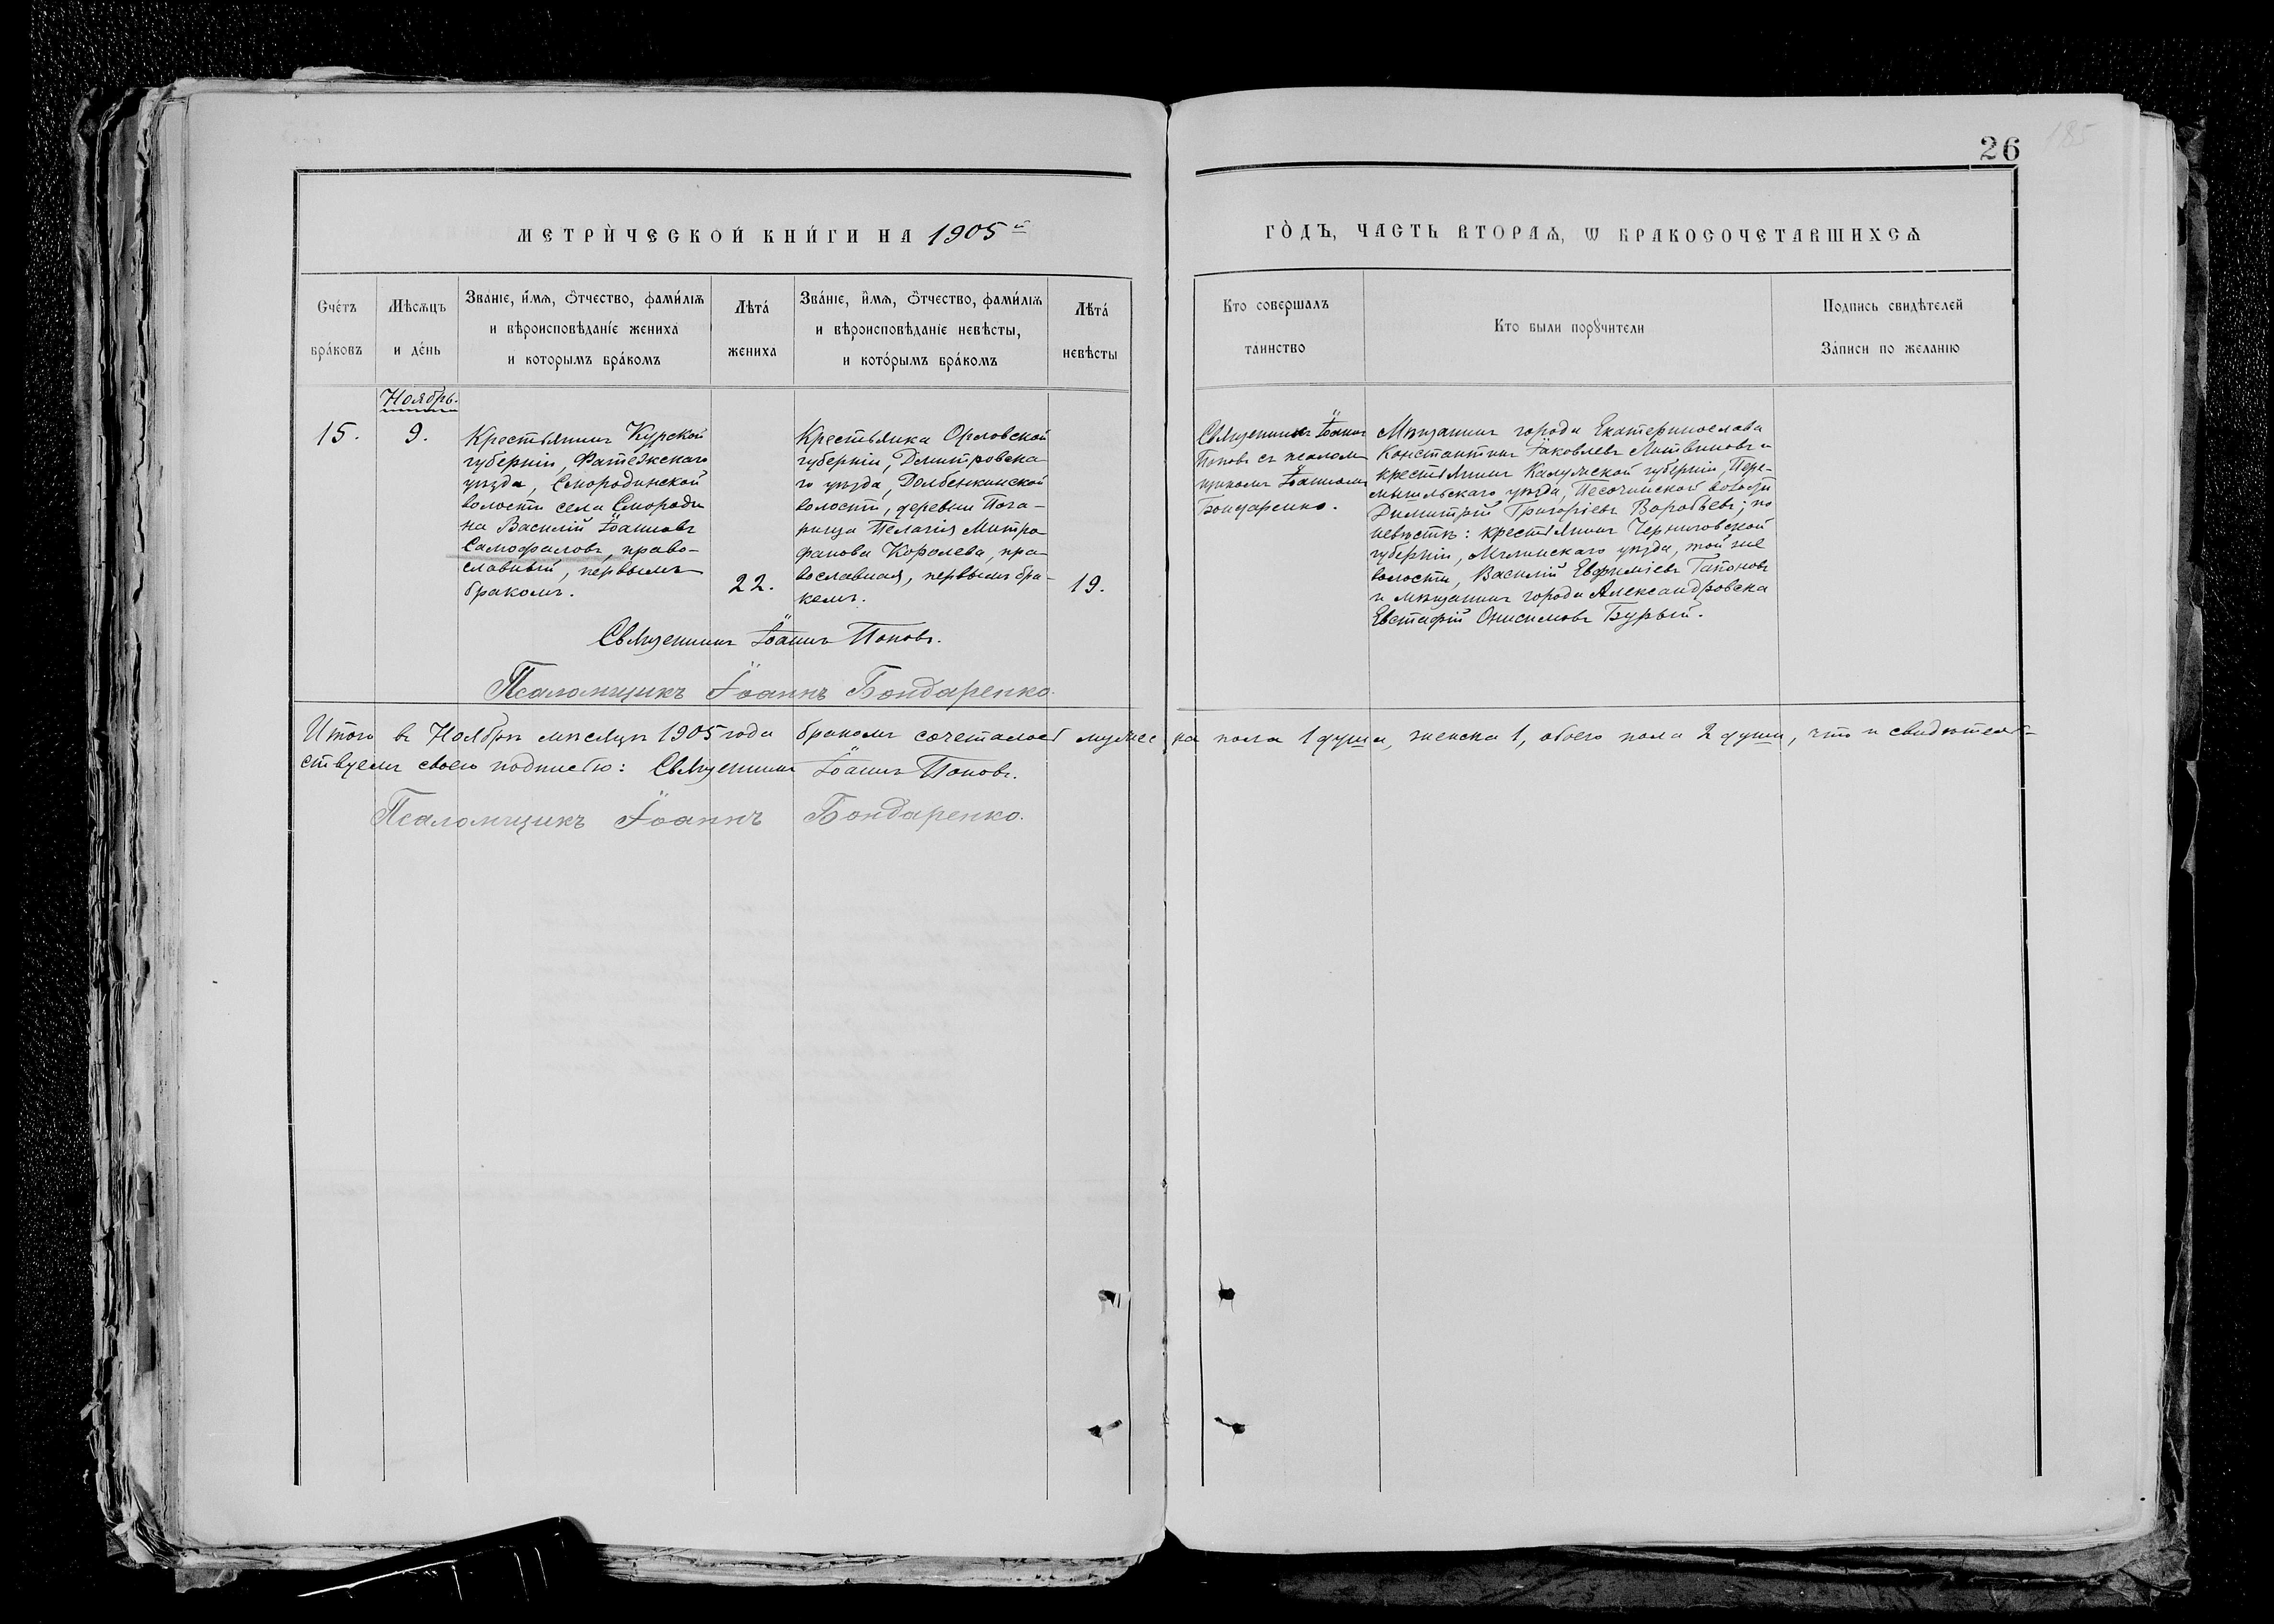 26
185
МЕТРИ́ЧЕСКОЙ КНИ́ГИ НА 1905й
ГО́ДЪ, ЧАСТЬ ВТОРАѦ, Ѡ БРАКОСОЧЕТАВШИХСѦ
Сче́тъ бра́ковъ
Мѣсѧцъ и де́нь
Зва́нїе, и́мѧ, ѻ҆тчество, фами́лїѧ
и вѣроисповѣданїе жениха
и которымъ бра́комъ
Лѣта́ жениха
Зва́нїе, и҆мѧ, ѻ҆тчество, фами́лїѧ
и вѣроисповѣданїе невѣсты,
и кото́рымъ бра́комъ
Лѣта́ невѣсты
Кто совершалъ таинство
Кто были порꙋчители
Подпись свидѣтелей
За́писи по желанїю
Ноябрь.
15.
9.
Крестьянинъ Курской
губернiи, Фатежскаго
уѣзда, Смородинской
волости села Смороди
на Василiй Iоанновъ
Самофаловъ, право-
славный, первымъ
бракомъ.
22.
Крестьянка Орловской
губернiи, Дмитровска-
го уѣзда, Долбенкинской
волости, деревни Пога-
рища Пелагiя Митро
фанова Королева, пра-
вославная, первымъ бра-
комъ.
19.
Священникъ Iоаннъ
Поповъ съ псалом
щикомъ Iоанномъ
Бондаренко.
Мѣщанинъ города Екатеринослава
Константинъ Iаковлевъ Литвиновъ и
крестьянинъ Калужской губернiи, Пере-
мышльскаго уѣзда, Песоченской волости
Димитрiй Григорiевъ Воробьевъ; по
невѣстѣ: крестьянинъ Черниговской
губернiи, Мглинскаго уѣзда, той же
волости, Василiй Евфимiевъ Гапоновъ
и мѣщанинъ города Александровска
Евстафiй Онисимовъ Бурый.
Священникъ Iоаннъ Поповъ.
Псаломщикъ Iоаннъ Бондаренко.
Итого въ Ноябрѣ мѣсяцѣ 1905 года бракомъ сочеталось мужес ка пола 1 душа, женска 1, обоего пола 2 души, что и свидѣтель-
ствуемъ своею подписью: Священникъ Iоаннъ Поповъ.
Псаломщикъ Iоаннъ Бондаренко.